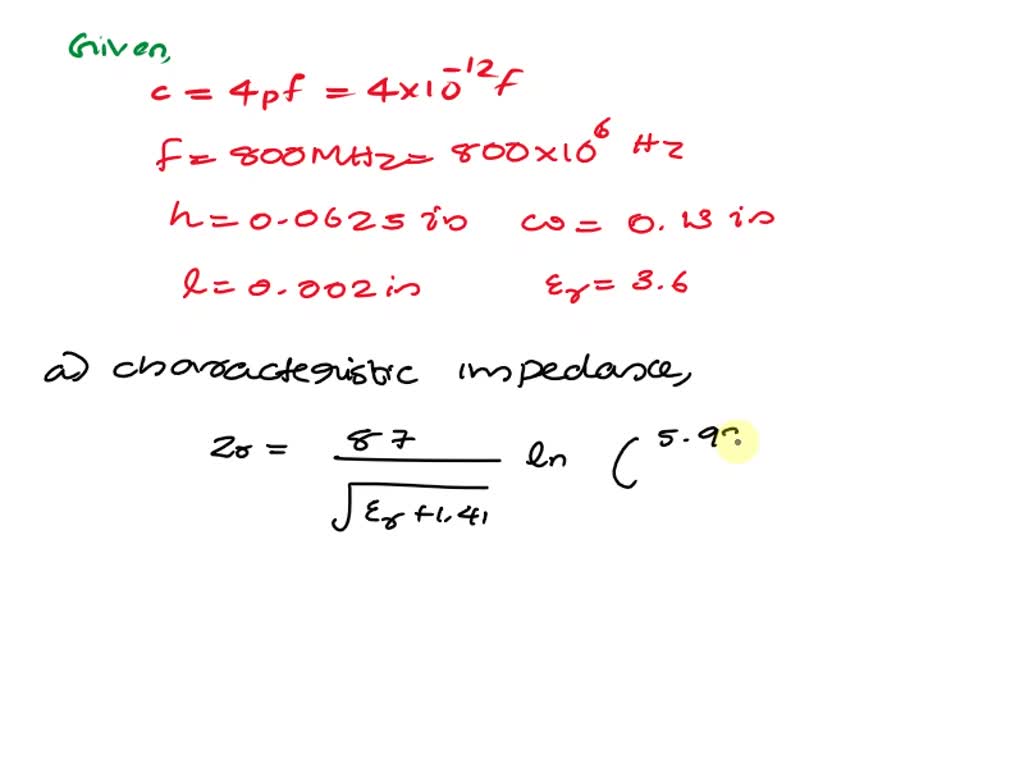 Given,
c = 4pf = 4×10⁻¹² f
f = 800MHz = 800×10⁶ Hz
h = 0.0625 in ω = 0.13 in
l = 0.002 in εr = 3.6
a) characteristic impedance,
Zo = 87 / √(εr + 1.41) ln ( 5.98